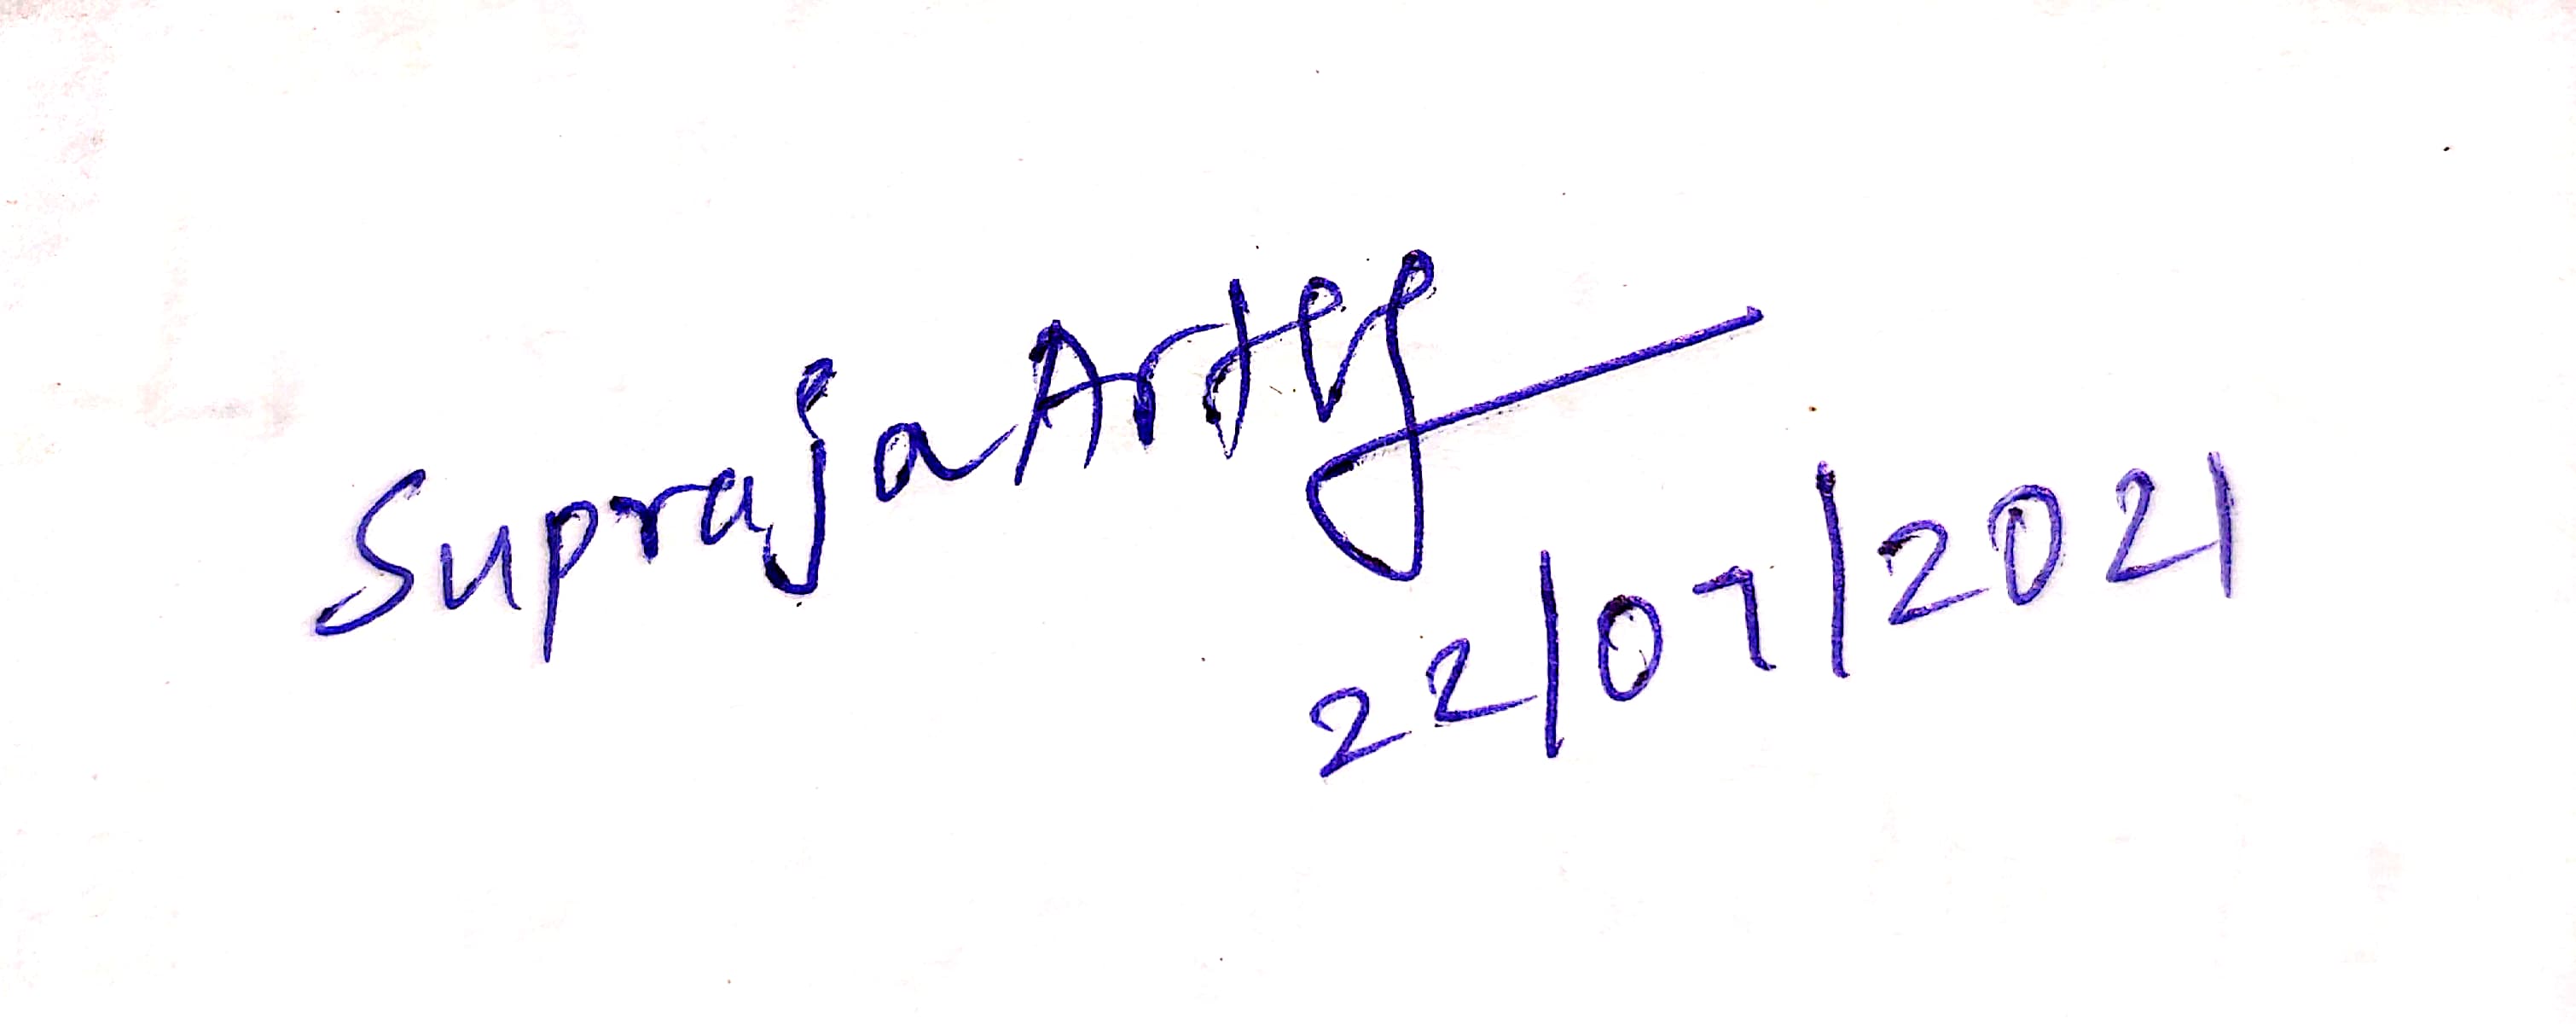 Supraja Artey
22/07/2021